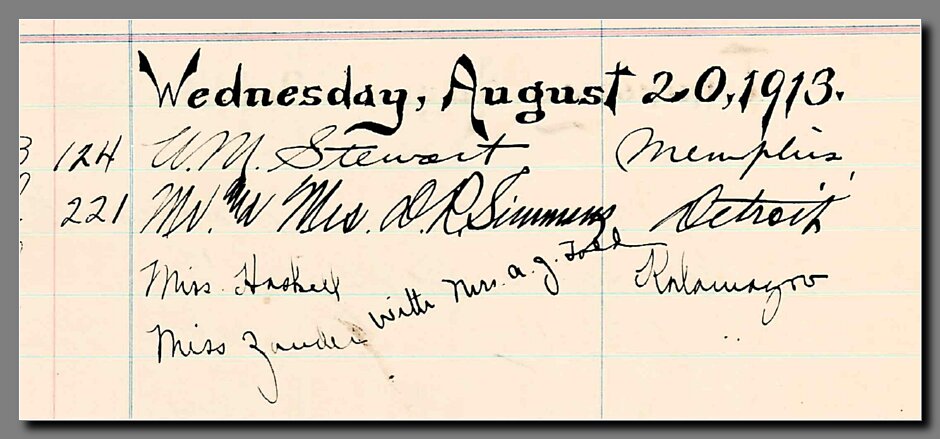 Wednesday, August 20, 1913.
124 W.M. Stewart Memphis
221 Mr. and Mrs. D.R. Simmens Detroit
Miss. Haskell with Mrs. A. J. Todd Kalamazoo
Miss Zander